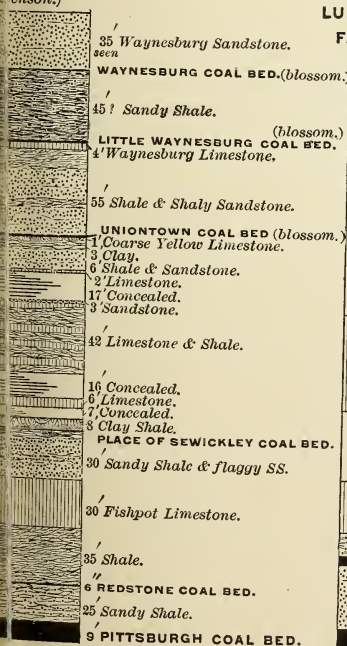 LU
F
35' Waynesburg Sandstone.
seen
WAYNESBURG COAL BED.(blossom.)
45'? Sandy Shale.
(blossom.)
LITTLE WAYNESBURG COAL BED.
4' Waynesburg Limestone.
55' Shale & Shaly Sandstone.
UNIONTOWN COAL BED (blossom.)
1' Coarse Yellow Limestone.
3' Clay.
6' Shale & Sandstone.
2' Limestone.
17' Concealed.
3' Sandstone.
42' Limestone & Shale.
16' Concealed.
6' Limestone.
7' Concealed.
8' Clay Shale.
PLACE OF SEWICKLEY COAL BED.
30' Sandy Shale & flaggy SS.
30' Fishpot Limestone.
35' Shale.
6" REDSTONE COAL BED.
25' Sandy Shale.
9' PITTSBURGH COAL BED.